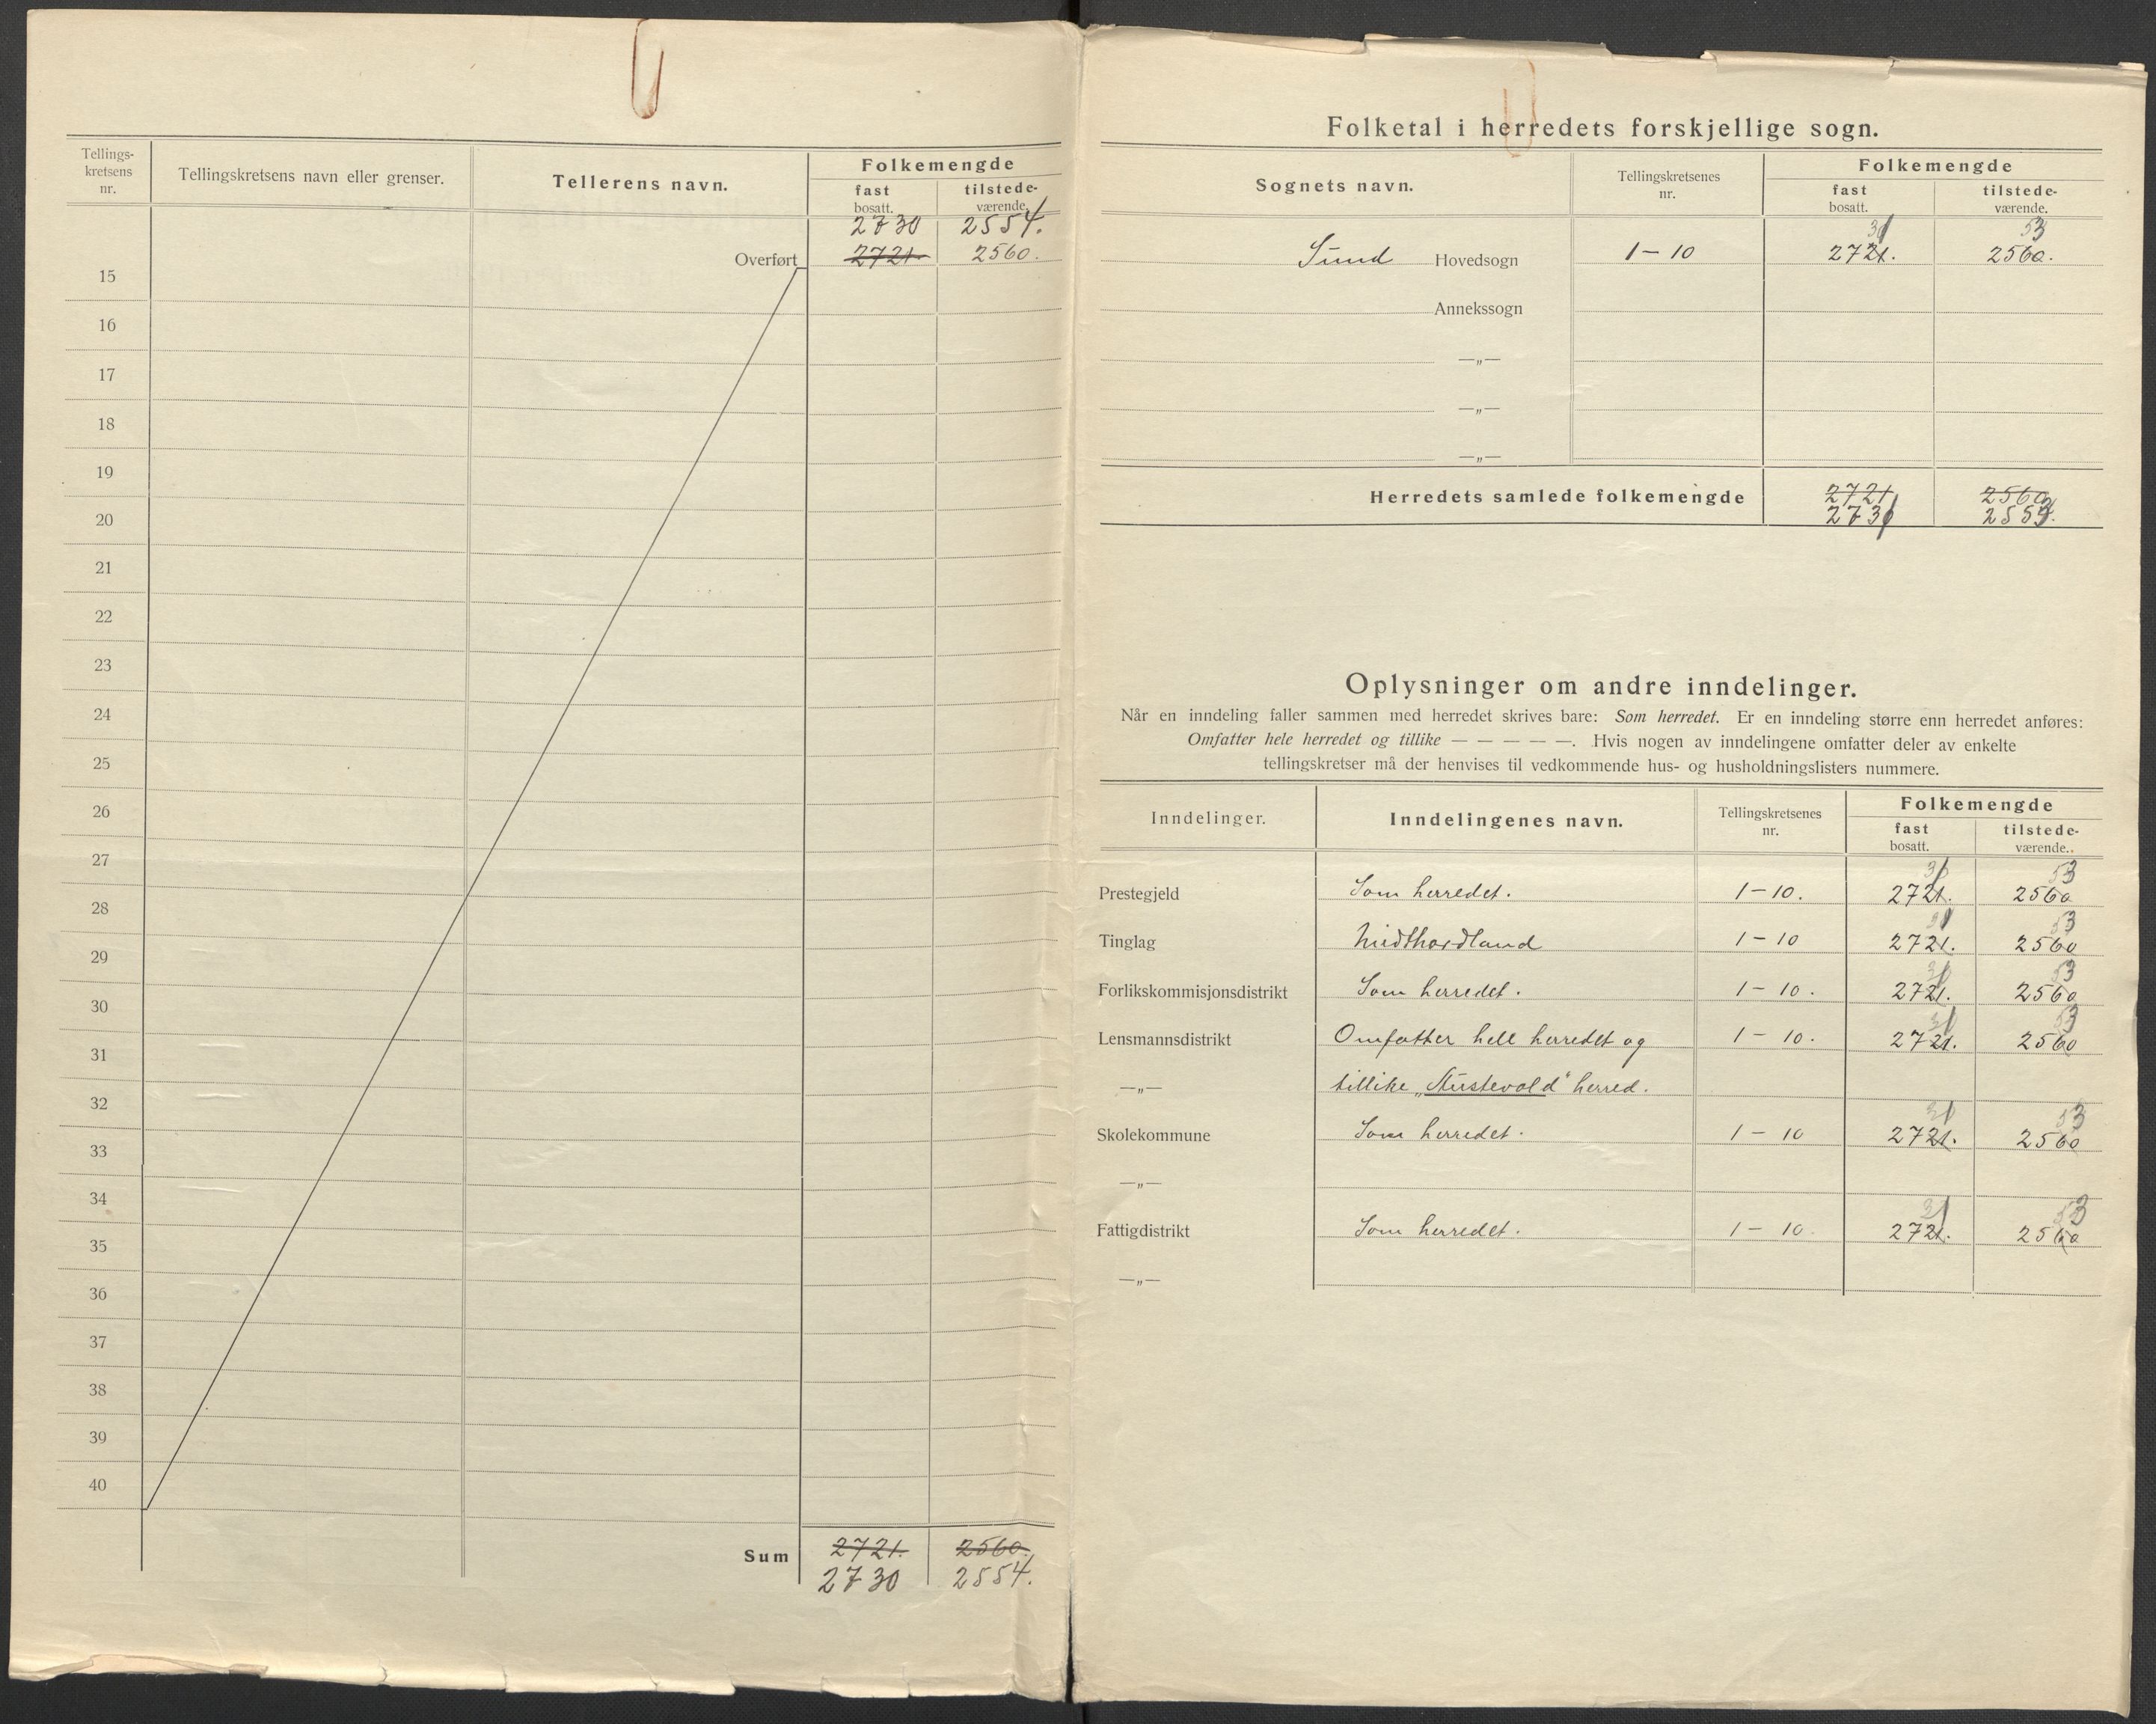 Tellings-
kretsens
nr.
Tellingskretsens navn eller grenser.
Tellerens navn.
Folkemengde
fast
bosatt.
tilstede-
værende.
2730 2554.
Overført 2721 2560.
15
16
17
18
19
20
21
22
23
24
25
26
27
28
29
30
31
32
33
34
35
36
37
38
39
40
Sum 2721. 2560.
2730 2554.
Folketal i herredets forskjellige sogn.
Sognets navn.
Tellingskretsenes
nr.
Folkemengde
fast
bosatt.
tilstede-
værende.
31 53
Sund Hovedsogn 1-10 2721. 2560.
Annekssogn
—„—
—„—
—„—
Herredets samlede folkemengde 2721 2560
2731 2553.
Oplysninger om andre inndelinger.
Når en inndeling faller sammen med herredet skrives bare: Som herredet. Er en inndeling større enn herredet anføres:
Omfatter hele herredet og tillike — — — — —. Hvis nogen av inndelingene omfatter deler av enkelte
tellingskretser må der henvises til vedkommende hus- og husholdningslisters nummere.
Inndelinger.
Inndelingenes navn.
Tellingskretsenes
nr.
Folkemengde
fast
bosatt.
tilstede-
værende.
31 53
Prestegjeld Som herredet. 1-10. 2721. 2560
31 53
Tinglag Midthordland 1-10 2721. 2560
31 53
Forlikskommisjonsdistrikt Som herredet. 1-10. 2721. 2560
31 53
Lensmannsdistrikt Omfatter hele herredet og 1-10. 2721. 2560
—„— tillike „Austevold" herred.
31 53
Skolekommune Som herredet. 1-10 2721. 2560
—„—
31 53
Fattigdistrikt Som herredet. 1-10. 2721. 2560
—„—